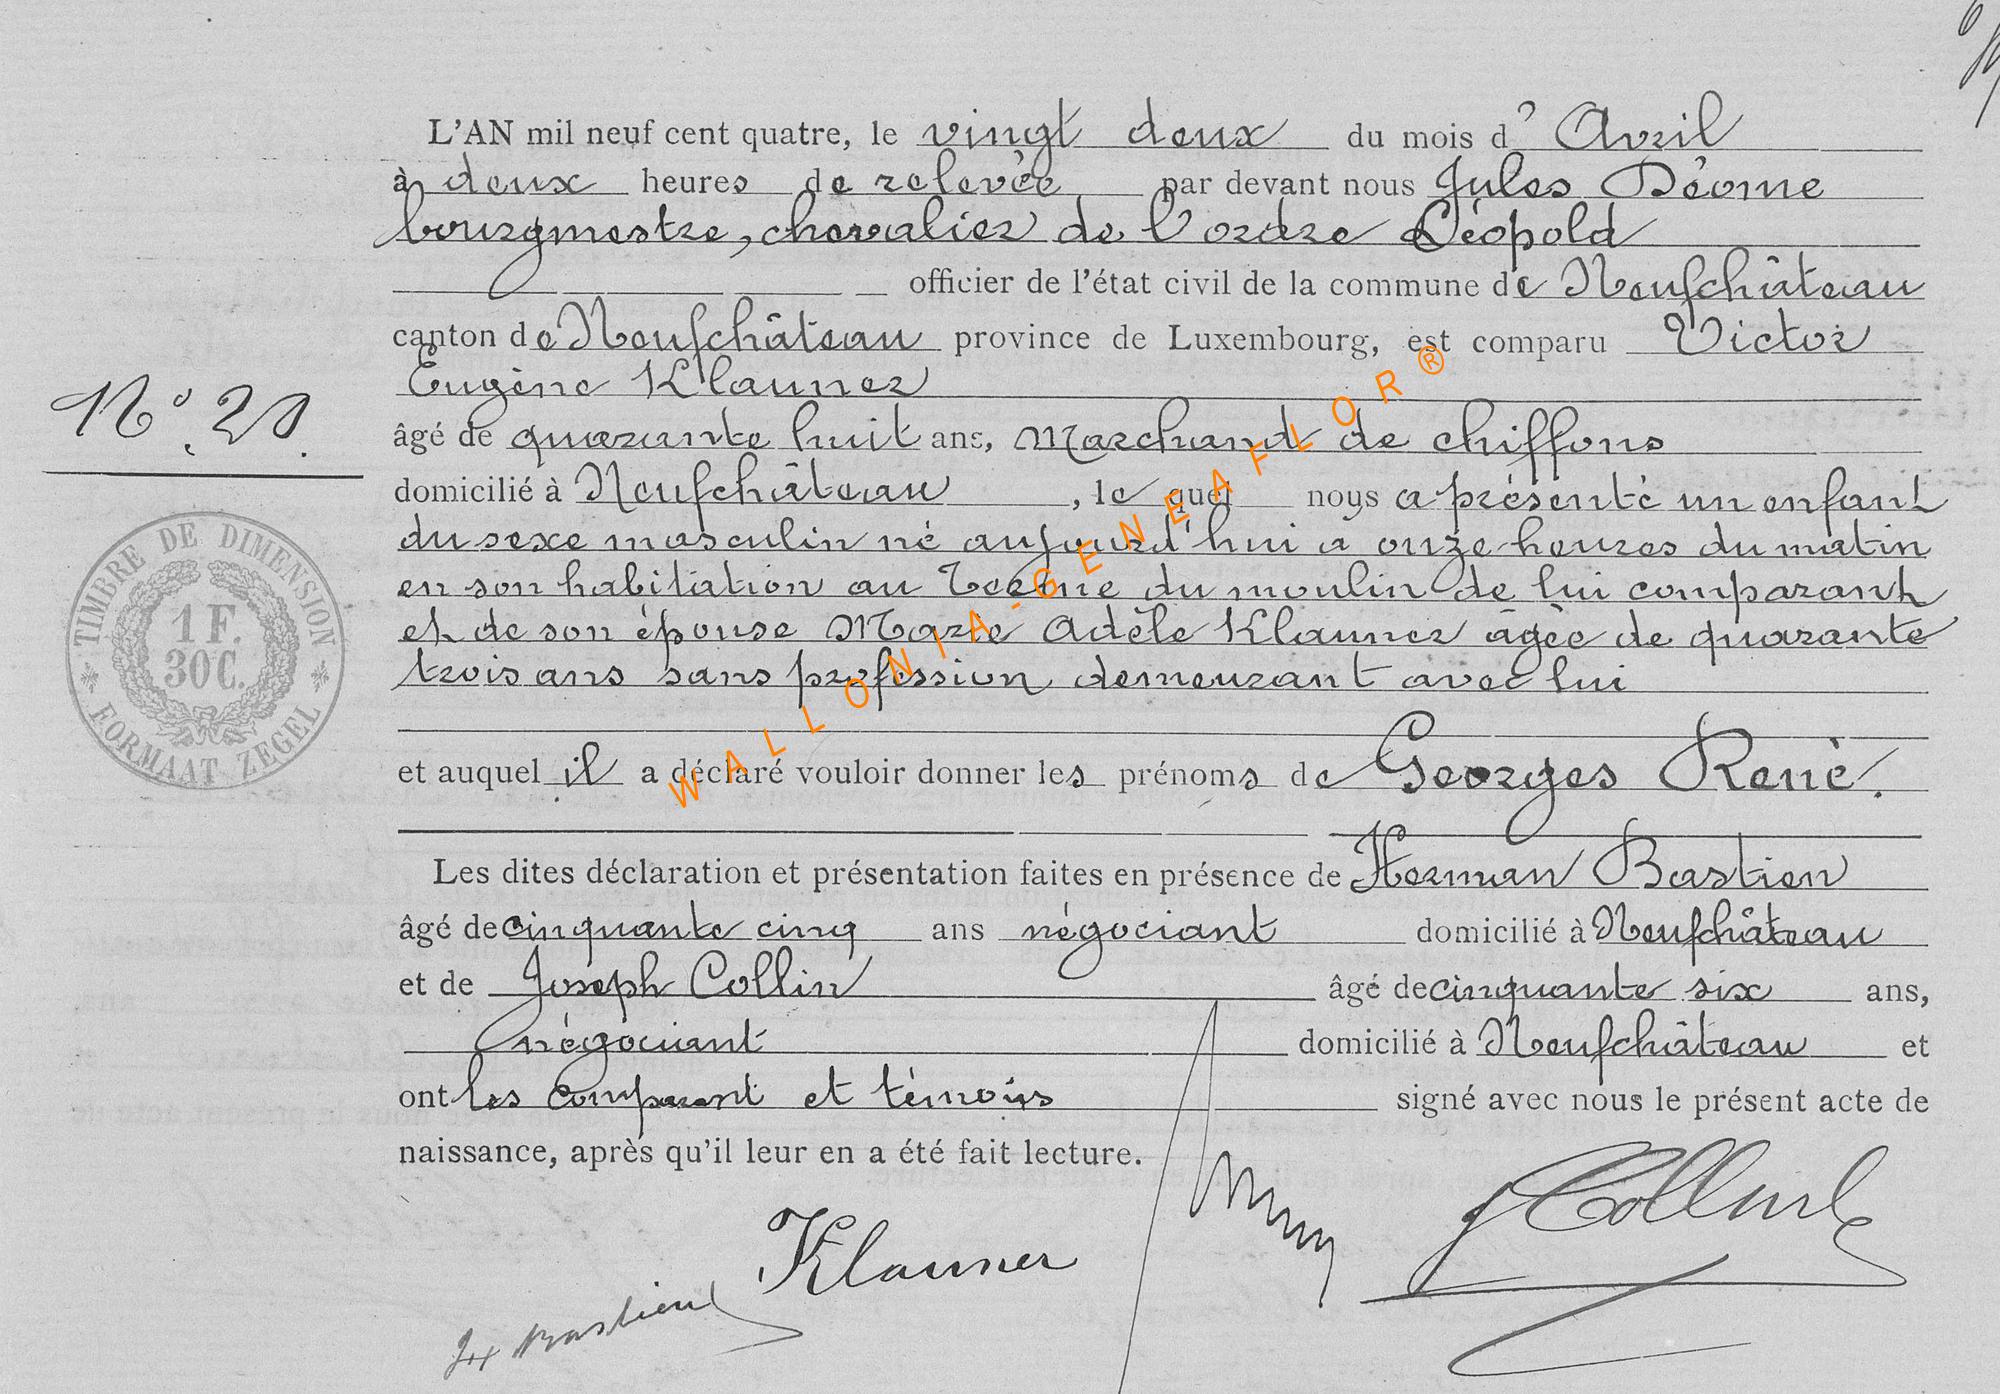 L'AN mil neuf cent quatre, le vingt deux du mois d' Avril
à deux heures de relevée par devant nous Jules Déome
bourgmestre, chevalier de l'ordre Léopold
officier de l'état civil de la commune de Neufchâteau
canton de Neufchâteau province de Luxembourg, est comparu Victor
Eugène Klauner
âgé de quarante huit ans, Marchand de chiffons
domicilié à Neufchâteau, le quel nous a présenté un enfant
du sexe masculin né aujourd'hui à onze heures du matin
en son habitation au Terme du moulin de lui comparant
et de son épouse Marie Adèle Klauner âgée de quarante
trois ans sans profession demeurant avec lui
et auquel il a déclaré vouloir donner les prénoms de Georges René.
Les dites déclaration et présentation faites en présence de Herman Bastien
âgé de cinquante cinq ans négociant domicilié à Neufchâteau
et de Joseph Collin âgé de cinquante six ans,
négociant domicilié à Neufchâteau et
ont les comparant et témoins signé avec nous le présent acte de
naissance, après qu'il leur en a été fait lecture.
Klauner
Bastien
J Collin
TIMBRE DE DIMENSION
1 F.
30 C.
FORMAAT ZEGEL
WALLONIA-GENEAFLOR®